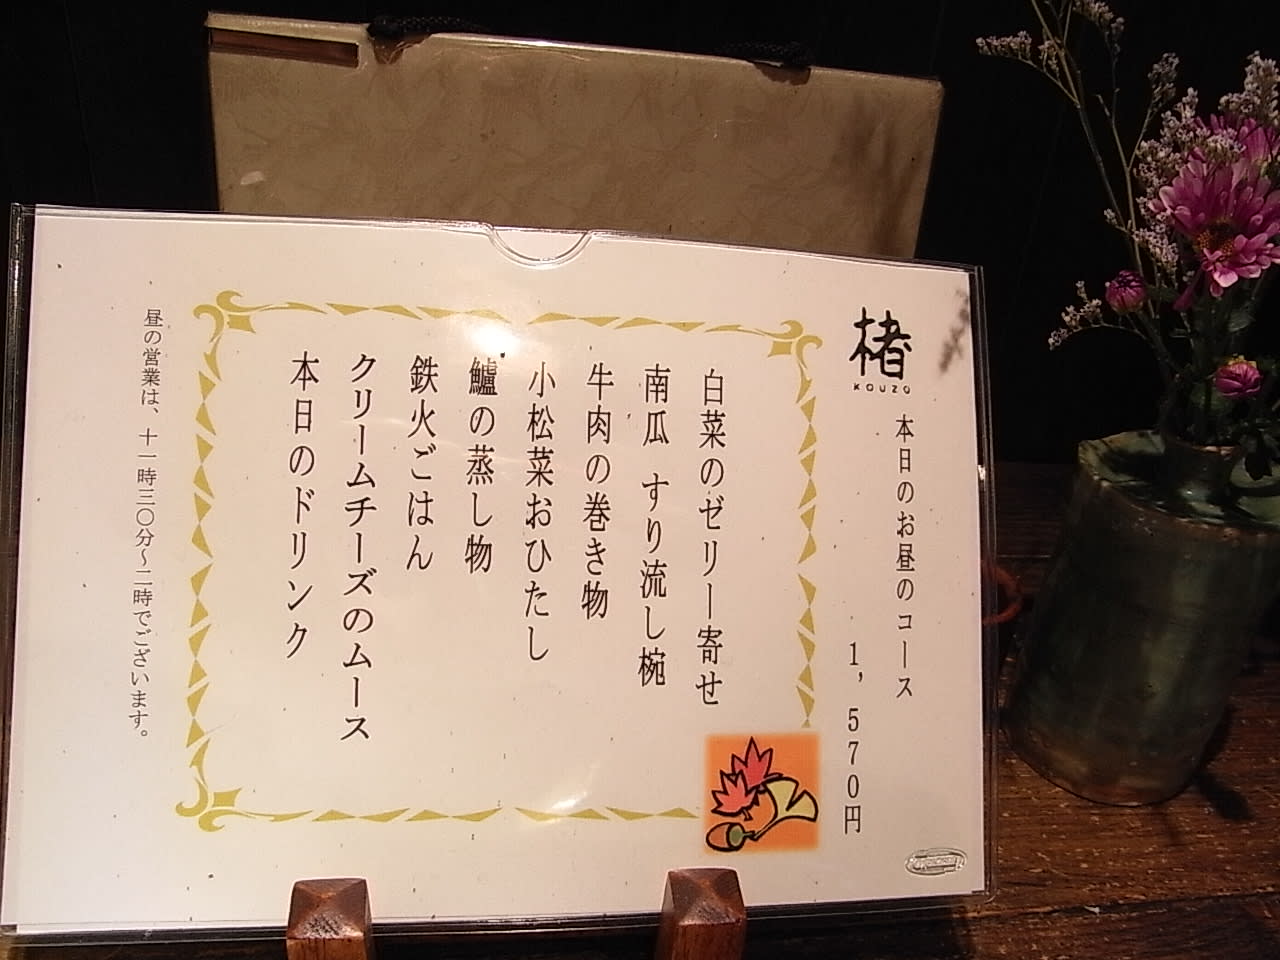 楮
KOUZO
本日のお昼のコース
1,570円
白菜のゼリー寄せ
南瓜 すり流し椀
牛肉の巻き物
小松菜おひたし
鱸の蒸し物
鉄火ごはん
クリームチーズのムース
本日のドリンク
昼の営業は、十一時三〇分~二時でございます。